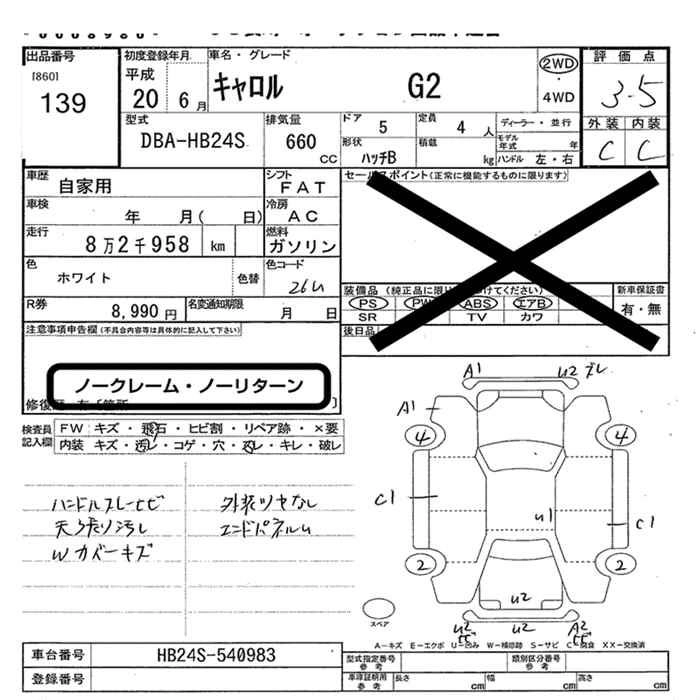 出品番号
[860]
139
初度登録年月
平成
20 6月
車名・グレード
キャロル G2
2WD
・
4WD
評価点
3.5
外装 内装
C C
型式
DBA-HB24S
排気量
660
cc
ドア
5
定員
4 人
ディーラー・並行
形状
ハッチB
積載
kg
モデル年式 年
ハンドル 左・右
車歴
自家用
シフト
FAT
車検
年 月( 日)
冷房
AC
走行
8万2千958 km
燃料
ガソリン
色
ホワイト
色替
色コード
26U
R券
8,990円
名変通知期限
月 日
セールスポイント(正常に機能するものに限ります)
装備品
PS PW ABS エアB
SR TV カワ
新車保証書
有・無
後日品
注意事項申告欄(不具合内容等は具体的に記入して下さい)
ノークレーム・ノーリターン
検査員
記入欄
FW キズ・飛石・ヒビ割・リペア跡・×要
内装 キズ・汚レ・コゲ・穴・スレ・キレ・破レ
外装ツヤなし
天張り汚れ
エンドパネルU
Wカバーキズ
A1 U2
A1
4 4
C1
U1
C1
2 2
U2
U2 U2 A2
スペア
A-キズ E-エクボ U-凹み W-補修跡 S-サビ C-腐食 XX-交換済
車台番号
HB24S-540983
登録番号
型式指定番号
参考
類別区分番号
参考
車庫証明用
参考
長さ cm
幅 cm
高さ cm